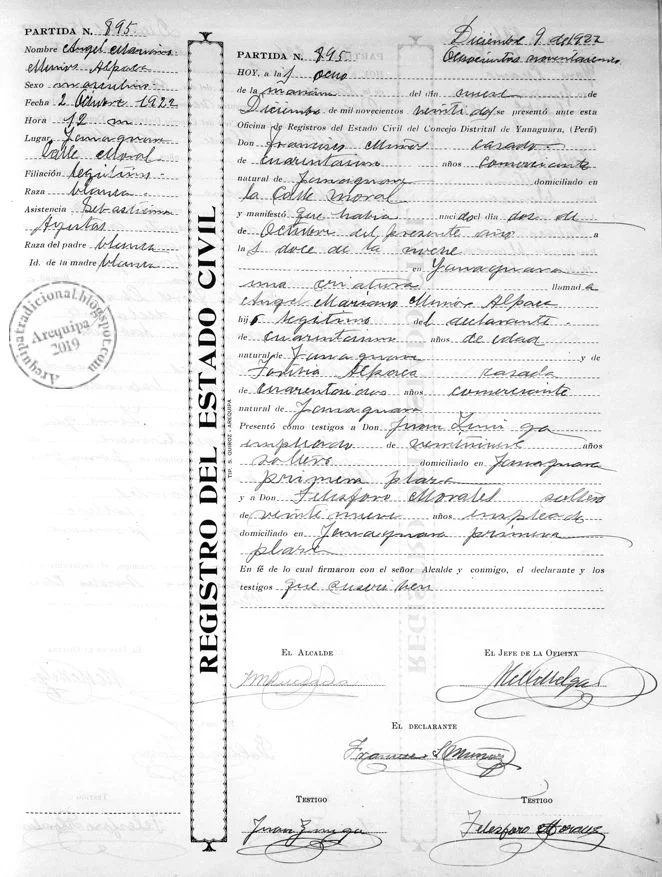 PARTIDA N. 895
Nombre Angel Mariano
Munoz Alpaca
Sexo masculino
Fecha 2 Octubre 1922
Hora 12 m
Lugar Yanaguara
Calle Moral
Filiación legitimo
Raza blanca
Asistencia Sebastiana
Raza del padre blanca
Id. de la madre blanca
Arequipatradicional.blogspot.com
Arequipa
2019
REGISTRO DEL ESTADO CIVIL
TIP. S. QUIROZ - AREQUIPA
Diciembre 9 de 1922
PARTIDA N. 895 Ochocientos noventaicinco
HOY, a las ocho
de la mañana del día nueve de
Diciembre de mil novecientos veintidos se presentó ante esta
Oficina de Registros del Estado Civil del Concejo Distrital de Yanaguara, (Perú)
Don Francisco Munoz casado
de cuarentaiun años comerciante
natural de Yanaguara domiciliado en
la Calle Moral
y manifestó que habia nacido el día dos de
de Octubre del presente año a
las doce de la noche
en Yanaguara
una criatura llamada
Angel Mariano Munoz Alpaca
hijo legitimo del declarante
de cuarentaiun años de edad
natural de Yanaguara y de
Alpaca casada
de cuarentaidos años comerciante
natural de Yanaguara
Presentó como testigos a Don Juan Zuniga
empleado de veintinueve años
soltero domiciliado en Yanaguara
primera plaza
y a Don Telesforo Morales soltero
de veinte nueve años empleado
domiciliado en Yanaguara primera
plaza
En fé de lo cual firmaron con el señor Alcalde y conmigo, el declarante y los
testigos que suscriben
EL ALCALDE EL JEFE DE LA OFICINA
EL DECLARANTE
Francisco Munoz
TESTIGO TESTIGO
Juan Zuniga Telesforo Morales